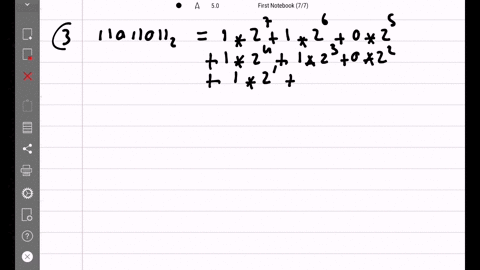 5.0 First Notebook (7/7)
③ 11011011₂ = 1 * 2⁷ + 1 * 2⁶ + 0 * 2⁵
+ 1 * 2⁴ + 1 * 2³ + 0 * 2²
+ 1 * 2¹ +